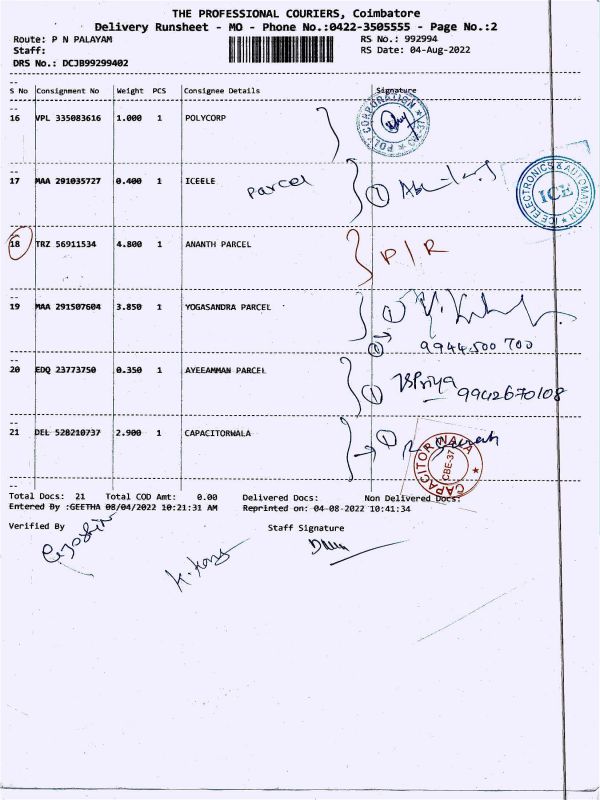 THE PROFESSIONAL COURIERS, Coimbatore
Delivery Runsheet - MO - Phone No.:0422-3505555 - Page No.:2
Route: P N PALAYAM RS No.: 992994
Staff: RS Date: 04-Aug-2022
DRS No.: DCJB99299402
S No Consignment No Weight PCS Consignee Details Signature
16 VPL 335083616 1.000 1 POLYCORP
POLY CORPORATION
17 MAA 291035727 0.400 1 ICEELE Parcel 1
ICE ELECTRONICS & AUTOMATION
ICE
18 TRZ 56911534 4.800 1 ANANTH PARCEL P/R
19 MAA 291507604 3.850 1 YOGASANDRA PARCEL 1
1 9944500 700
20 EDQ 23773750 0.350 1 AYEEAMMAN PARCEL 1 VSPriya 9942670108
21 DEL 528210737 2.900 1 CAPACITORWALA 1
CAPACITOR WALA
CBE-37
Total Docs: 21 Total COD Amt: 0.00 Delivered Docs: Non Delivered Docs:
Entered By :GEETHA 08/04/2022 10:21:31 AM Reprinted on: 04-08-2022 10:41:34
Verified By Staff Signature